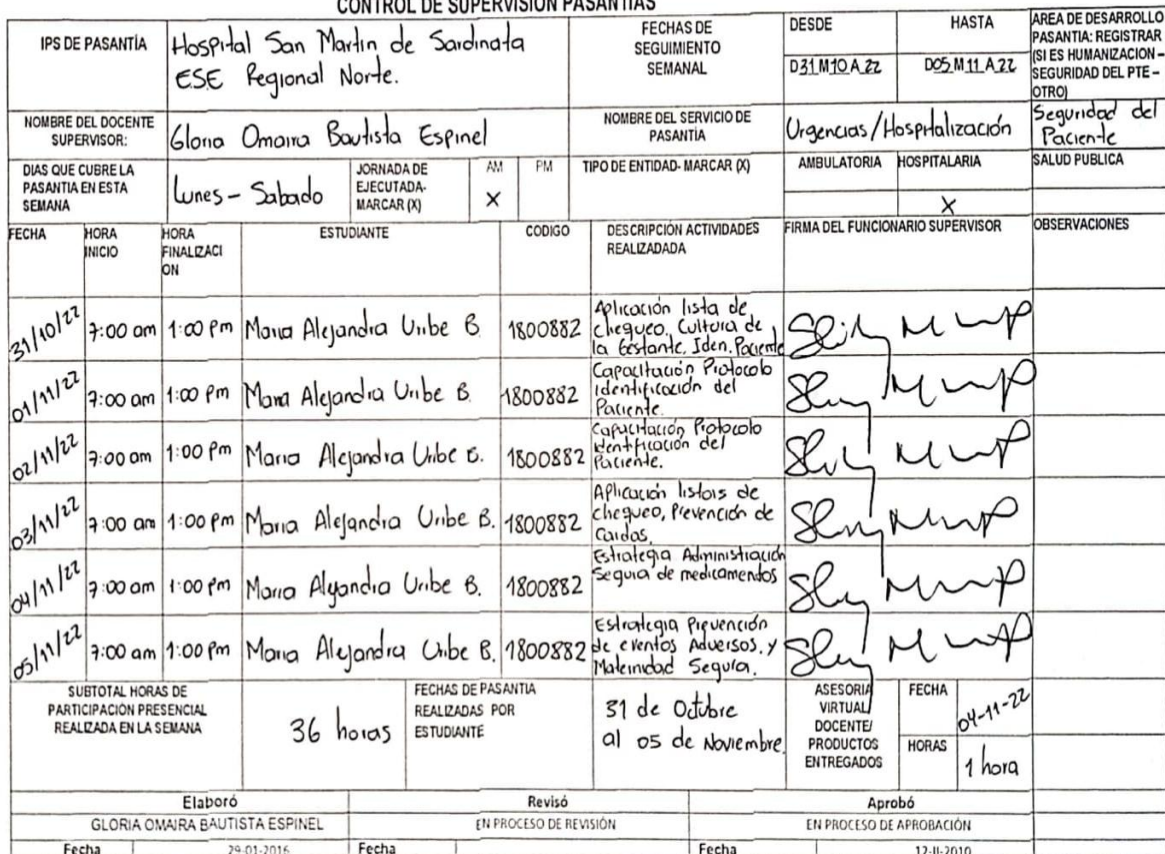 CONTROL DE SUPERVISION PASANTIAS
IPS DE PASANTÍA
Hospital San Martin de Sardinata
ESE Regional Norte.
FECHAS DE
SEGUIMIENTO
SEMANAL
DESDE
HASTA
D31 M10 A22
D05 M11 A22
AREA DE DESARROLLO
PASANTIA: REGISTRAR
(SI ES HUMANIZACION –
SEGURIDAD DEL PTE –
OTRO)
NOMBRE DEL DOCENTE
SUPERVISOR:
Gloria Omaira Bautista Espinel
NOMBRE DEL SERVICIO DE
PASANTÍA
Urgencias/Hospitalización
Seguridad del
Paciente
DIAS QUE CUBRE LA
PASANTIA EN ESTA
SEMANA
Lunes - Sabado
JORNADA DE
EJECUTADA-
MARCAR (X)
AM
PM
X
TIPO DE ENTIDAD- MARCAR (X)
AMBULATORIA
HOSPITALARIA
X
SALUD PUBLICA
FECHA
HORA
INICIO
HORA
FINALIZACI
ON
ESTUDIANTE
CODIGO
DESCRIPCIÓN ACTIVIDADES
REALIZADADA
FIRMA DEL FUNCIONARIO SUPERVISOR
OBSERVACIONES
31/10/22 7:00 am 1:00 pm Maria Alejandra Uribe B. 1800882
Aplicación lista de
chequeo, Cultura de
la Gestante, Iden. Paciente
01/11/22 7:00 am 1:00 pm Maria Alejandra Uribe B. 1800882
Capacitación Protocolo
identificación del
Paciente.
02/11/22 7:00 am 1:00 pm Maria Alejandra Uribe B. 1800882
Capacitación Protocolo
identificación del
Paciente.
03/11/22 7:00 am 1:00 pm Maria Alejandra Uribe B. 1800882
Aplicación listas de
chequeo, Prevención de
Caidas.
04/11/22 7:00 am 1:00 pm Maria Alejandra Uribe B. 1800882
Estrategia Administración
Segura de medicamentos
05/11/22 7:00 am 1:00 pm Maria Alejandra Uribe B. 1800882
Estrategia Prevención
de eventos Adversos, y
Maternidad Segura.
SUBTOTAL HORAS DE
PARTICIPACIÓN PRESENCIAL
REALIZADA EN LA SEMANA
36 horas
FECHAS DE PASANTIA
REALIZADAS POR
ESTUDIANTE
31 de Octubre
al 05 de Noviembre.
ASESORIA
VIRTUAL
DOCENTE/
PRODUCTOS
ENTREGADOS
FECHA
04-11-22
HORAS
1 hora
Elaboró Revisó Aprobó
GLORIA OMAIRA BAUTISTA ESPINEL EN PROCESO DE REVISIÓN EN PROCESO DE APROBACIÓN
Fecha 29-01-2016 Fecha Fecha 12-II-2010